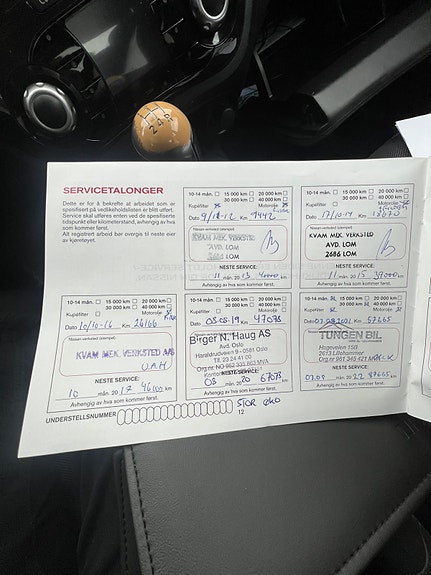 SERVICETALONGER
Dette er for å bekrefte at arbeidet som er
spesifisert på vedlikeholdslisten er blitt utført.
Service skal utføres enten ved de spesifiserte
tidspunkt eller kilometerstand, avhengig av hva
som kommer først.
Alt registrert arbeid bør overgis til neste eier
av kjøretøyet.
10-14 mån. 15 000 km 20 000 km
30 000 km 40 000 km
Kupéfilter Motorolje
Dato 9/10-12 Km 7442
Nissan-verksted (stempel)
KVAM MEK. VERKSTED
AVD. LOM
2686 LOM
NESTE SERVICE:
11 mån. 20 13 km
Avhengig av hva som kommer først.
10-14 mån. 15 000 km 20 000 km
30 000 km 40 000 km
Kupéfilter Motorolje
Dato 17/10-14 Km
Nissan-verksted (stempel)
KVAM MEK. VERKSTED
AVD. LOM
2686 LOM
NESTE SERVICE:
11 mån. 20 15 39000 km
Avhengig av hva som kommer først.
10-14 mån. 15 000 km 20 000 km
30 000 km 40 000 km
Kupéfilter Motorolje
Dato 10/10-16 Km 26166
Nissan-verksted (stempel)
KVAM MEK. VERKSTED A/S
VAH
NESTE SERVICE:
10 mån. 20 17 46000 km
Avhengig av hva som kommer først.
10-14 mån. 15 000 km 20 000 km
30 000 km 40 000 km
Kupéfilter Motorolje
Dato 05.03-19 Km 47073
Birger N. Haug AS
Avd. Oslo
Haraldrudveien 9 - 0581 Oslo
NESTE SERVICE:
03 20 67073 km
Avhengig av hva som kommer først.
10-14 mån. 15 000 km 20 000 km
30 000 km 40 000 km
Kupéfilter Motorolje
Dato 03.09.2021 Km 57665
TUNGEN BIL
Hageveien 15B
2613 Lillehammer
NESTE SERVICE:
03.09 mån. 20 22 87665 km
Avhengig av hva som kommer først.
UNDERSTELLSNUMMER
STOR øko
12